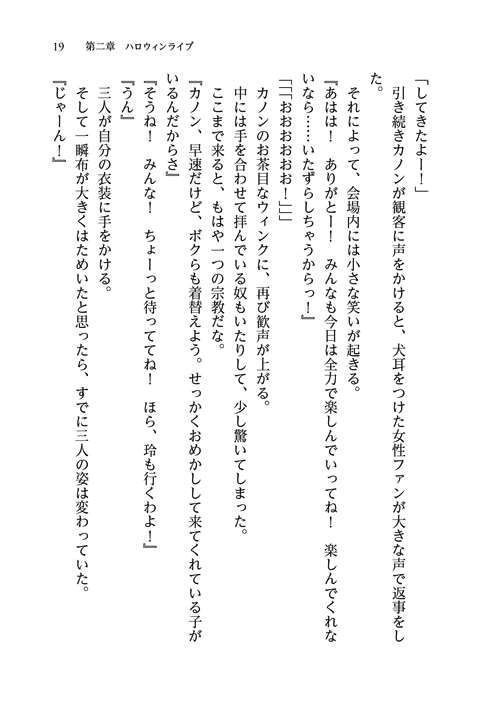 19　第二章　ハロウィンライブ
「してきたよー！」
　引き続きカノンが観客に声をかけると、犬耳をつけた女性ファンが大きな声で返事をし
た。
　それによって、会場内には小さな笑いが起きる。
『あはは！　ありがとー！　みんなも今日は全力で楽しんでいってね！　楽しんでくれな
いなら……いたずらしちゃうからっ！』
「「「おおおおおお！」」」
　カノンのお茶目なウィンクに、再び歓声が上がる。
　中には手を合わせて拝んでいる奴もいたりして、少し驚いてしまった。
　ここまで来ると、もはや一つの宗教だな。
『カノン、早速だけど、ボクらも着替えよう。せっかくおめかしして来てくれている子が
いるんだからさ』
『そうね！　みんな！　ちょーっと待っててね！　ほら、玲も行くわよ！』
『うん』
　三人が自分の衣装に手をかける。
　そして一瞬布が大きくはためいたと思ったら、すでに三人の姿は変わっていた。
『じゃーん！』